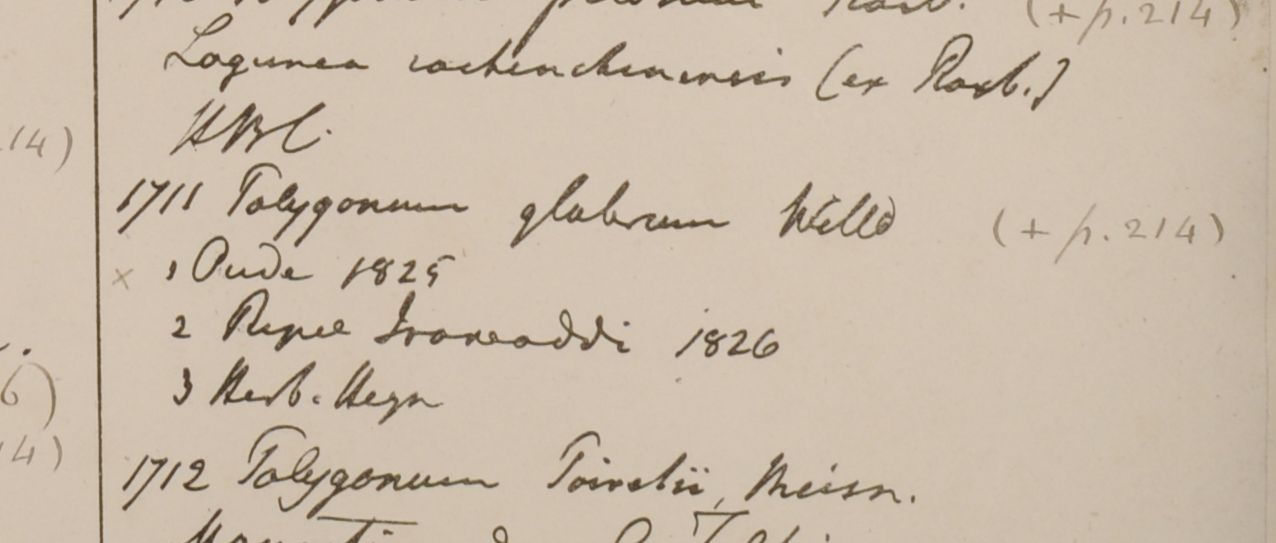 (+ p. 214)
Lagunea cochinchinensis (ex Roxb.)
HBC.
14)
1711 Polygonum glabrum Willd (+ p. 214)
x 1 Oude 1825
2 Ripae Irawaddi 1826
3 Herb. Heyn
6)
1712 Polygonum Poiretii, Meisn.
4)